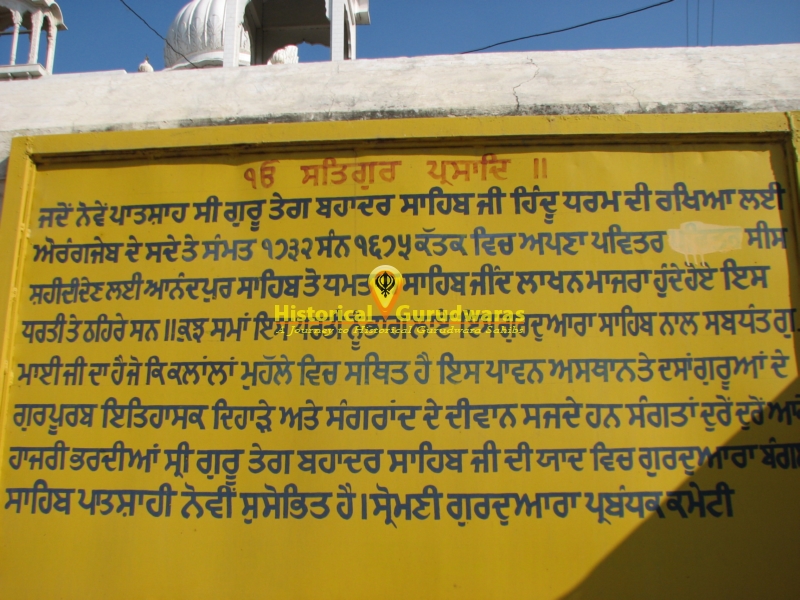 ੴ ਸਤਿਗੁਰ ਪ੍ਰਸਾਦਿ ॥
ਜਦੋਂ ਨੋਵੇਂ ਪਾਤਸ਼ਾਹ ਸੀ ਗੁਰੂ ਤੇਗ ਬਹਾਦਰ ਸਾਹਿਬ ਜੀ ਹਿੰਦੂ ਧਰਮ ਦੀ ਰਖਿਆ ਲਈ
ਔਰੰਗਜੇਬ ਦੇ ਸਦੇ ਤੇ ਸੰਮਤ ੧੭੩੨ ਸੰਨ ੧੬੭੫ ਕੱਤਕ ਵਿਚ ਅਪਣਾ ਪਵਿਤਰ ਸੀਸ
ਸ਼ਹੀਦੀ ਦੇਣ ਲਈ ਆਨੰਦਪੁਰ ਸਾਹਿਬ ਤੋ ਧਮਤ ਸਾਹਿਬ ਜੀਂਦ ਲਾਖਨ ਮਾਜਰਾ ਹੁੰਦੇ ਹੋਏ ਇਸ
Historical Gurudwaras
A Journey to Historical Gurudwara Sahibs
ਧਰਤੀ ਤੇ ਠਹਿਰੇ ਸਨ ॥ ਕੁਝ ਸਮਾਂ ਗੁਰਦੁਆਰਾ ਸਾਹਿਬ ਨਾਲ ਸਬਧੰਤ
ਮਾਈ ਜੀ ਦਾ ਹੈ ਜੋ ਕਿ ਕਲਾਂਲਾਂ ਮੁਹੱਲੇ ਵਿਚ ਸਥਿਤ ਹੈ ਇਸ ਪਾਵਨ ਅਸਥਾਨ ਤੇ ਦਸਾਂ ਗੁਰੂਆਂ ਦੇ
ਗੁਰਪੂਰਬ ਇਤਿਹਾਸਕ ਦਿਹਾੜੇ ਅਤੇ ਸੰਗਰਾਂਦ ਦੇ ਦੀਵਾਨ ਸਜਦੇ ਹਨ ਸੰਗਤਾਂ ਦੁਰੋਂ ਦੁਰੋਂ
ਹਾਜਰੀ ਭਰਦੀਆਂ ਸ੍ਰੀ ਗੁਰੂ ਤੇਗ ਬਹਾਦਰ ਸਾਹਿਬ ਜੀ ਦੀ ਯਾਦ ਵਿਚ ਗੁਰਦੁਆਰਾ
ਸਾਹਿਬ ਪਤਸ਼ਾਹੀ ਨੋਵੀਂ ਸੁਸੋਭਿਤ ਹੈ। ਸ੍ਰੋਮਣੀ ਗੁਰਦੁਆਰਾ ਪ੍ਰਬੰਧਕ ਕਮੇਟੀ